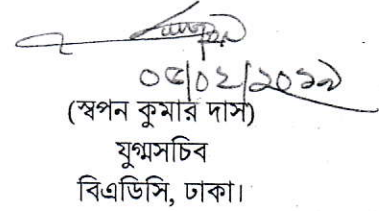 ০৫/০২/২০১৯
(স্বপন কুমার দাস)
যুগ্মসচিব
বিএডিসি, ঢাকা।